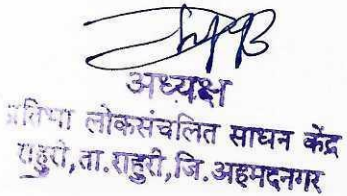 अध्यक्ष
लोकसंचलित साधन केंद्र
राहुरी,ता.राहुरी,जि.अहमदनगर